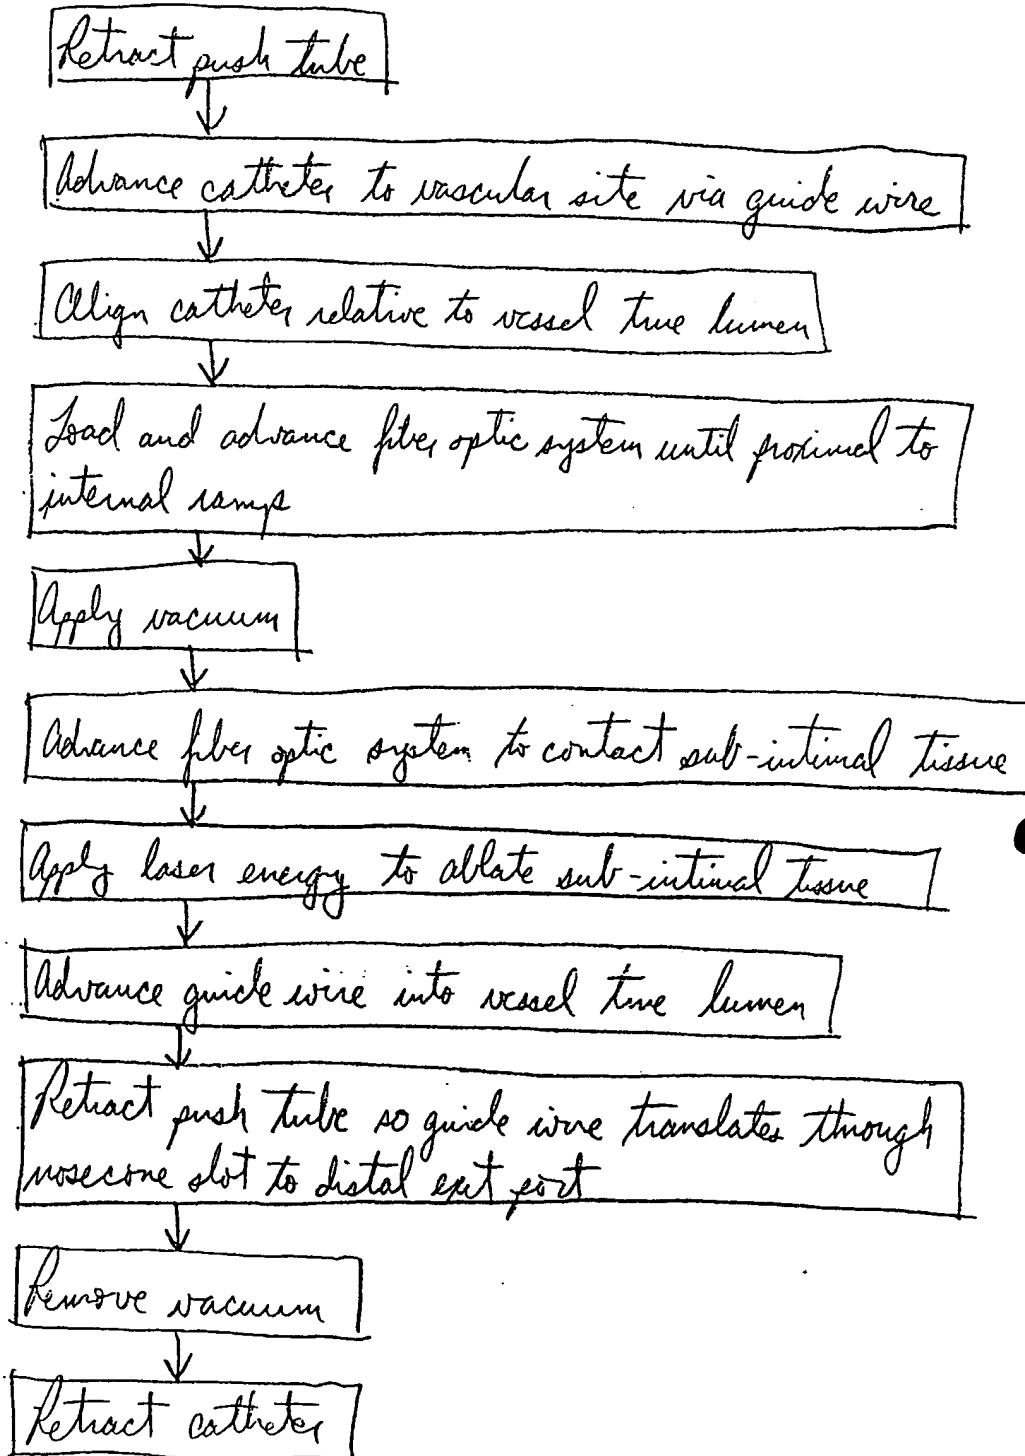 Retract push tube
Advance catheter to vascular site via guide wire
Align catheter relative to vessel true lumen
Load and advance fiber optic system until proximal to
internal ramps
Apply vacuum
Advance fiber optic system to contact sub-intimal tissue
Apply laser energy to ablate sub-intimal tissue
Advance guide wire into vessel true lumen
Retract push tube so guide wire translates through
nosecone slot to distal exit port
Remove vacuum
Retract catheter